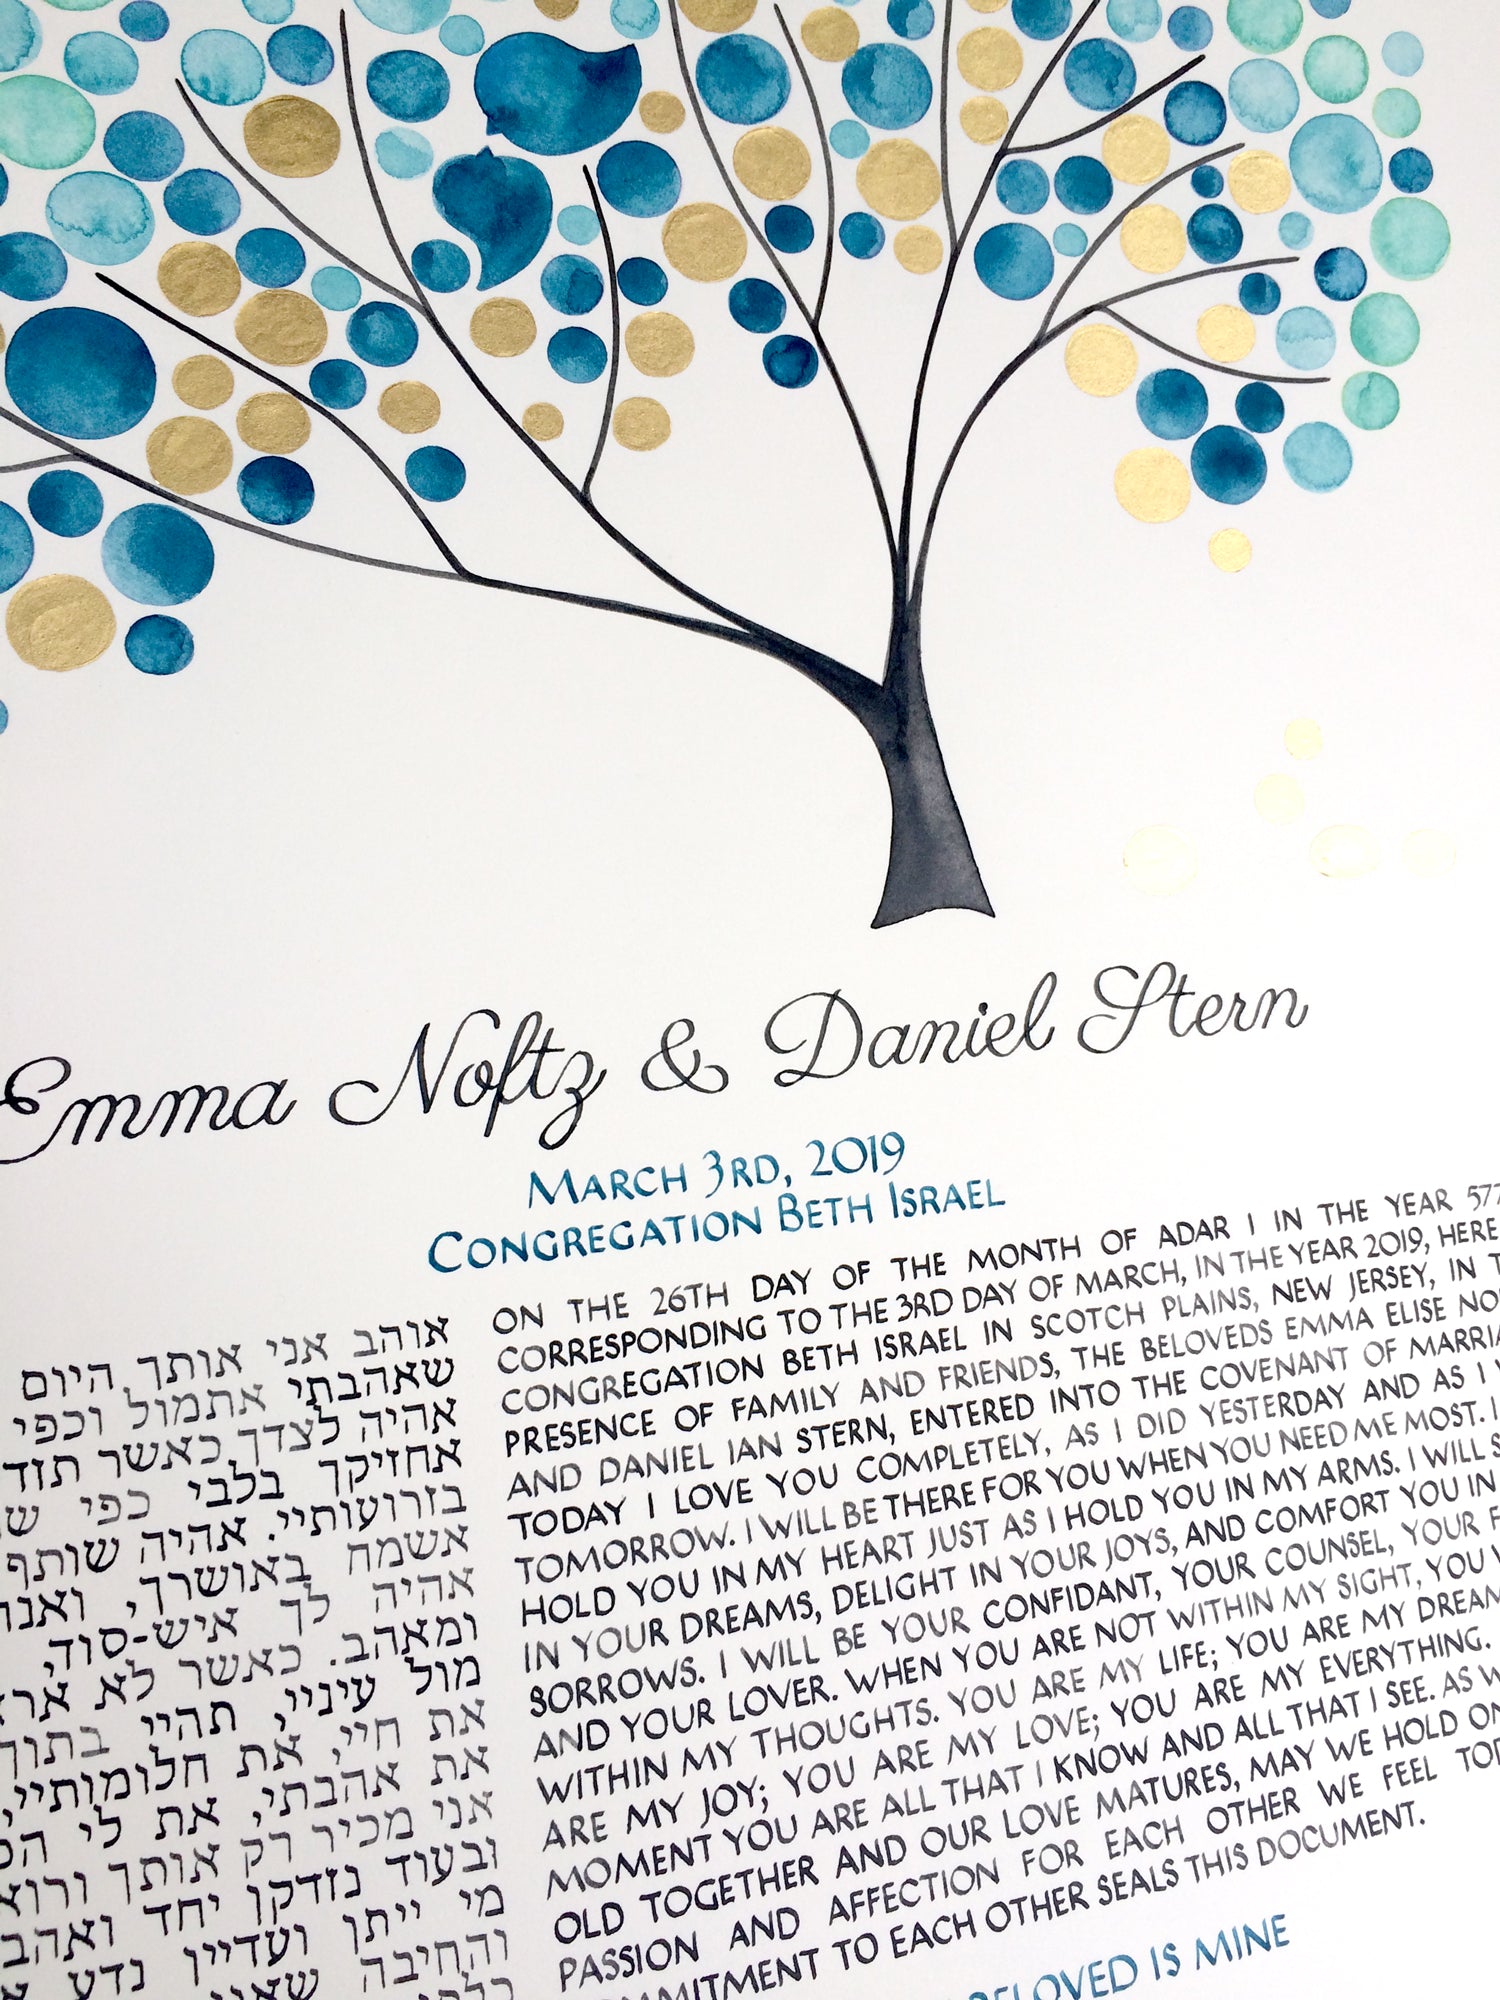 Emma Noltz & Daniel Stern
March 3rd, 2019
Congregation Beth Israel
ON THE 26TH DAY OF THE MONTH OF ADAR I IN THE YEAR 577
CORRESPONDING TO THE 3RD DAY OF MARCH, IN THE YEAR 2019, HERE
CONGREGATION BETH ISRAEL IN SCOTCH PLAINS, NEW JERSEY, IN T
PRESENCE OF FAMILY AND FRIENDS, THE BELOVEDS EMMA ELISE NO
AND DANIEL IAN STERN, ENTERED INTO THE COVENANT OF MARRIA
TODAY I LOVE YOU COMPLETELY, AS I DID YESTERDAY AND AS I
TOMORROW. I WILL BE THERE FOR YOU WHEN YOU NEED ME MOST. I
HOLD YOU IN MY HEART JUST AS I HOLD YOU IN MY ARMS. I WILL S
IN YOUR DREAMS, DELIGHT IN YOUR JOYS, AND COMFORT YOU IN
SORROWS. I WILL BE YOUR CONFIDANT, YOUR COUNSEL, YOUR F
AND YOUR LOVER. WHEN YOU ARE NOT WITHIN MY SIGHT, YOU
WITHIN MY THOUGHTS. YOU ARE MY LIFE; YOU ARE MY DREAM
ARE MY JOY; YOU ARE MY LOVE; YOU ARE MY EVERYTHING.
MOMENT YOU ARE ALL THAT I KNOW AND ALL THAT I SEE. AS W
OLD TOGETHER AND OUR LOVE MATURES, MAY WE HOLD ON
PASSION AND AFFECTION FOR EACH OTHER WE FEEL TOD
COMMITMENT TO EACH OTHER SEALS THIS DOCUMENT.
BELOVED IS MINE
אוהב אני אותך היום
שאהבתי אתמול וכפי
אהיה לצדך כאשר תוד
אחזיקך בלבי כפי ש
בזרועותיי. אהיה שותף
אשמח באושרך, ואנח
אהיה לך איש-סוד,
ומאהב. כאשר לא ארא
מול עיניי, תהיי בתוך
את חיי, את חלומותיי,
את אהבתי, את לי הכ
אני מכיר רק אותך ורוא
ובעוד נזדקן יחד ואהב
מי ייתן ועדיין נדע א
והחיבה שאני